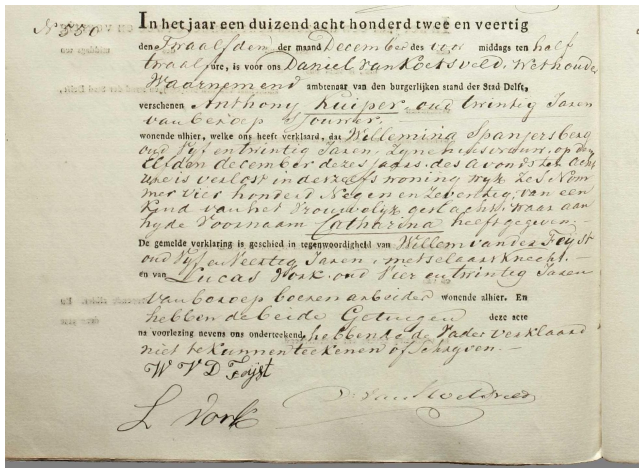 N 550
In het jaar een duizend acht honderd twee en veertig
den Twaalfden der maand December des voor middags ten half
twaalf ure, is voor ons Daniel van Koetsveld, Wethouder
Waarnemend ambtenaar van den burgerlijken stand der Stad Delft,
verschenen Anthony Kuiper, oud twintig Jaren
van beroep Touwer,
wonende alhier, welke ons heeft verklaard, dat Willemina Spanjersberg
oud Vijf en twintig Jaren, Zyne huisvrouw, op den
Elfden december dezes jaars, des avonds ten acht
ure is verlost in derzelfs woning wyk Zes Nom
mer vier honderd Negen en Zeventig, van een
Kind van het Vrouwelyk geslacht, waar aan
hy de Voornaam Catharina heeft gegeven.
De gemelde verklaring is geschied in tegenwoordigheid van Willem van der Feyst
oud Vyf en Veertig Jaren, metselaars knecht.
en van Lucas Vork, oud Vier en twintig Jaren
van beroep boeren arbeider wonende alhier. En
hebben de beide Getuigen deze acte
na voorlezing nevens ons onderteekend, hebbende de Vader verklaard
niet te kunnen teekenen of Schryven.
W V D Feijst
L Vork